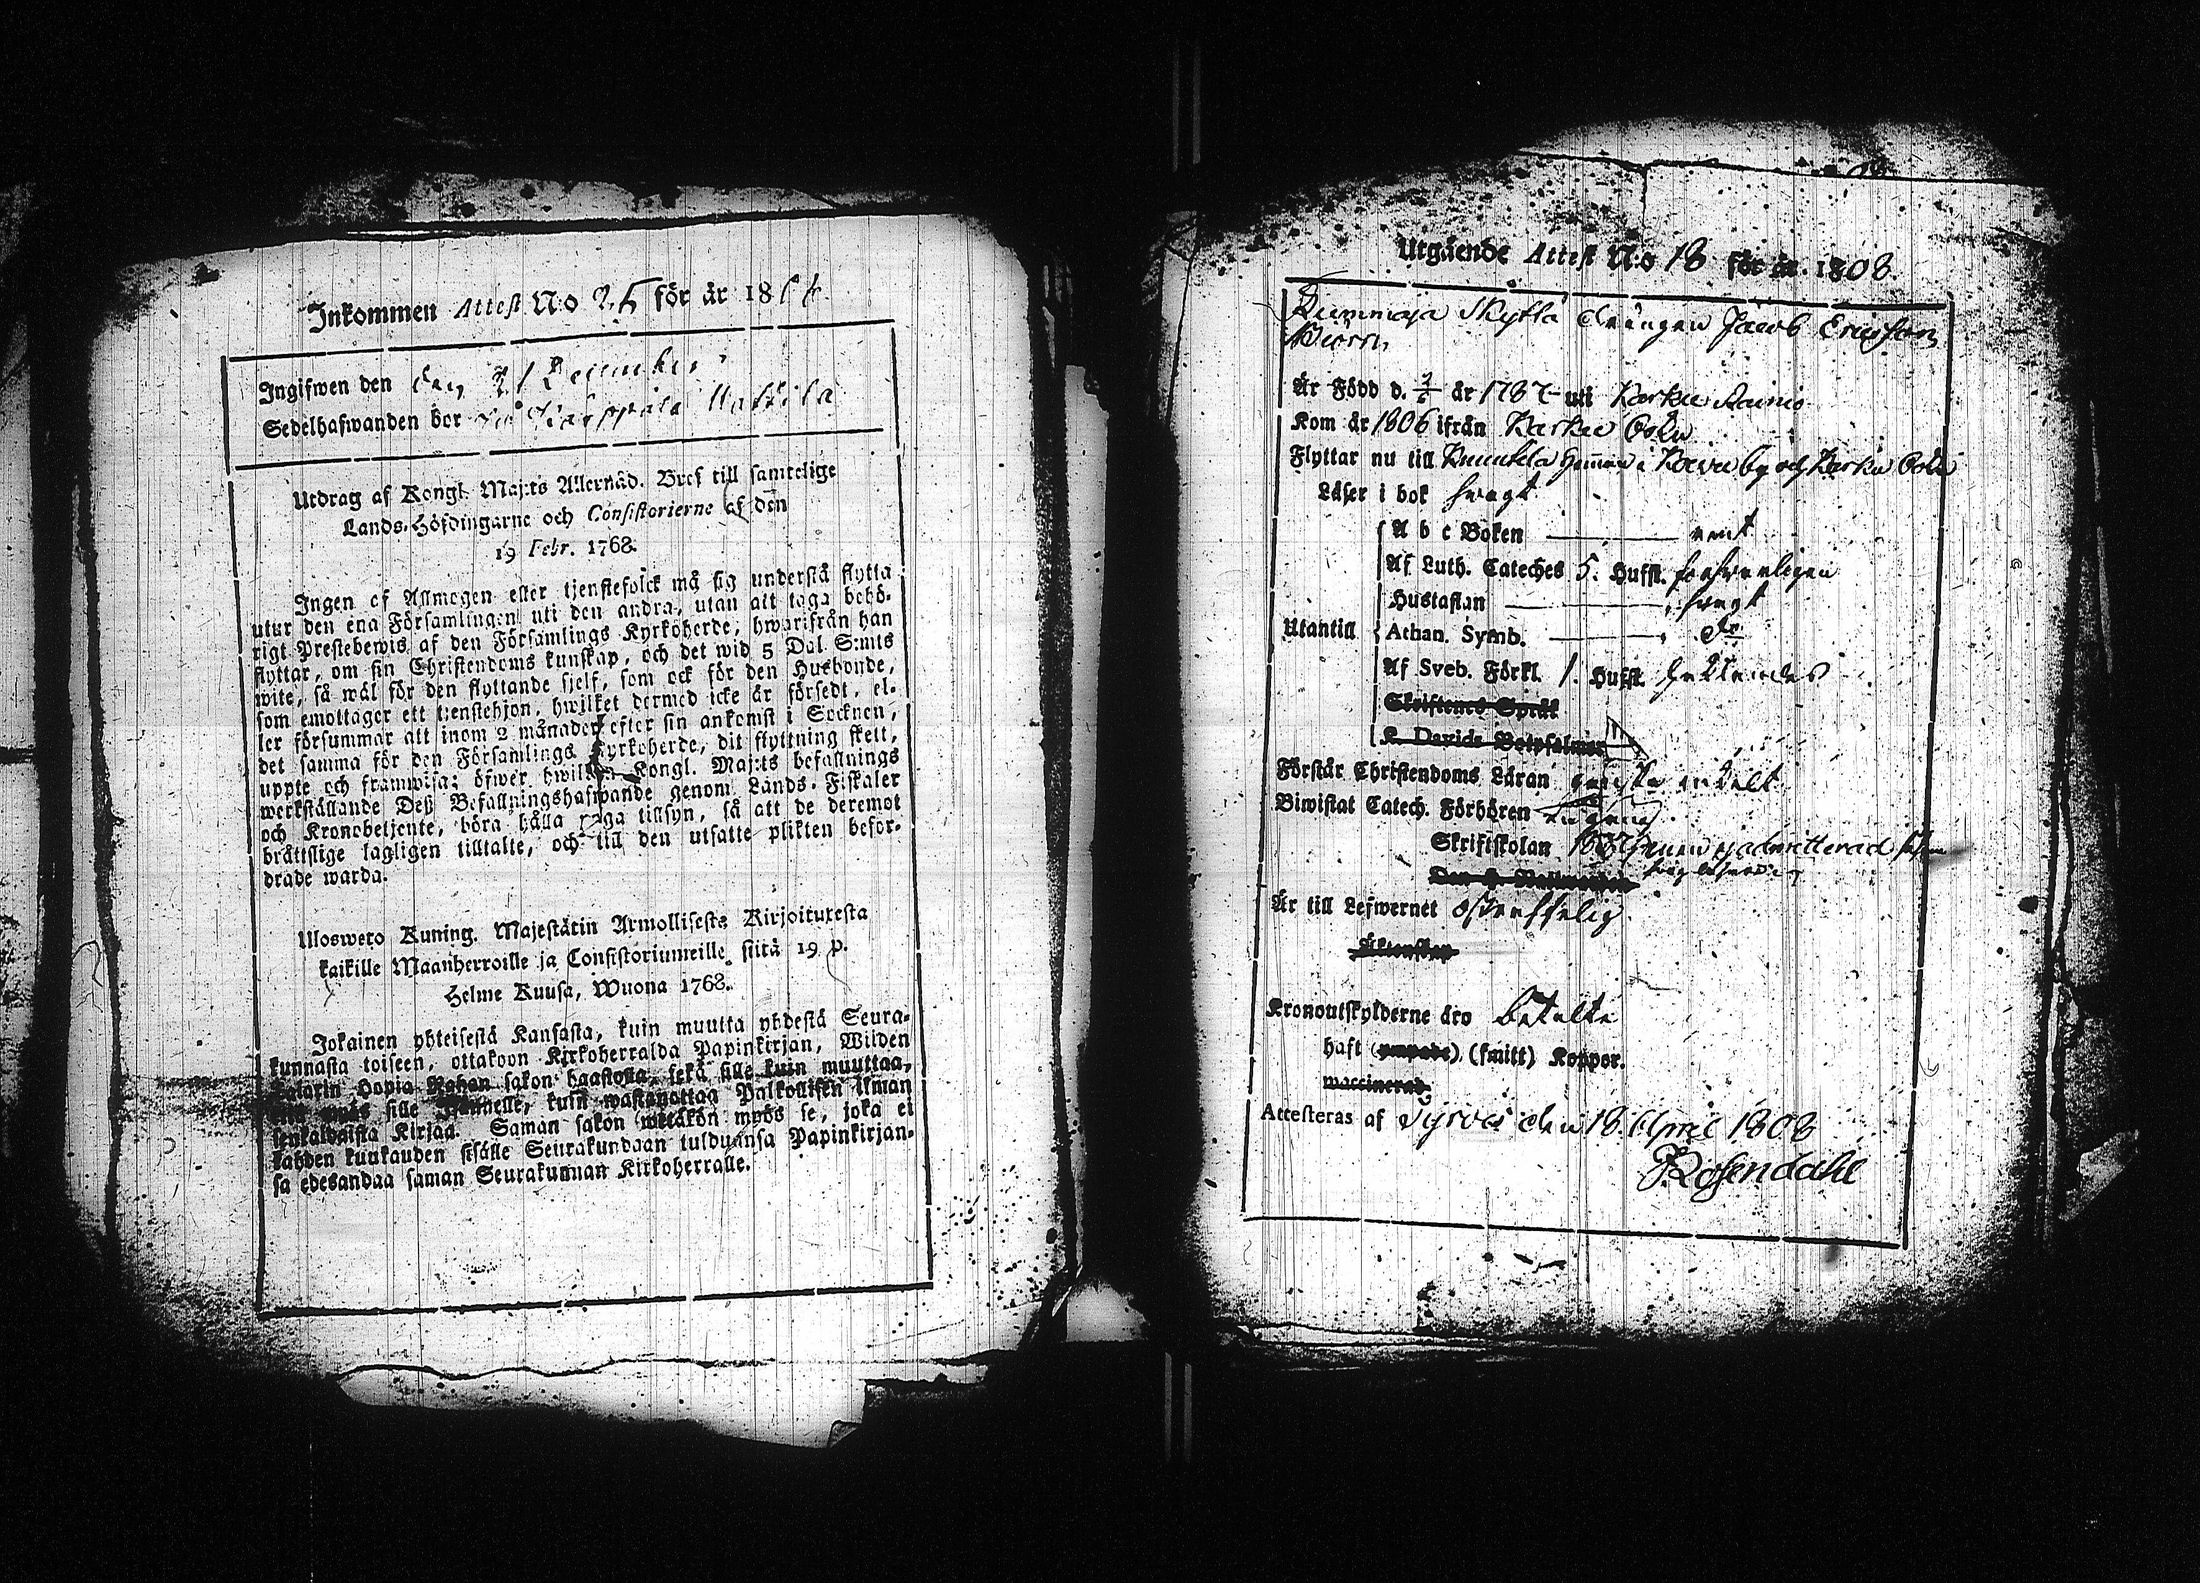 Inkommen Attest N:o 25 för år 18
Ingifwen den den 21 December
Sedelhafwanden bor
Utdrag af Kongl. Maj:ts Allernåd. Bref till samtelige
Lands-Höfdingarne och Consistorierne af den
19 Febr. 1768.
Ingen af Allmogen eller tjenstefolck må sig understå flytta
utur den ena Församlingen uti den andra, utan att taga behö-
rigt Prestebewis af den Församlings Kyrkoherde, hwarifrån han
flyttar, om sin Christendoms kunskap, och det wid 5 Dal. S:mts
wite, så wäl för den flyttande sjelf, som ock för den Husbonde,
som emottager ett tjenstehjon, hwilket dermed icke är försedt, el-
ler försummar att inom 2 månader efter sin ankomst i Socknen,
det samma för den Församlings Kyrkoherde, dit flyttning skett,
uppte och framwisa; öfwer hwilken Kongl. Maj:ts befallnings
werkställande Deß Befallningshafwande genom Lands-Fiskaler
och Kronobetjente, böra hålla noga tillsyn, så att de deremot
bråttslige lagligen tilltalte, och till den utsatte plikten befor-
drade warda.
Ulosweto Kuning. Majestätin Armollisesta Kirjoituxesta
kaikille Maanherroille ja Consistoriumeille, siitä 19 p.
Helme Kuusa, Wuona 1768.
Jokainen yhteisestä Kansasta, kuin muutta yhdestä Seura-
kunnasta toiseen, ottakoon Kirkoherralda Papinkirjan, Wiiden
Talarin Hopia Rahan sakon haastolla, sekä sille kuin muuttaa,
sille Isännelle, kuin wastanottaa Palkollisen ilman
senkaldaista Kirjaa. Saman sakon wetäkön myös se, joka ei
kahden kuukauden sisälle Seurakundaan tulduansa Papinkirjan-
sa edesandaa saman Seurakunnan Kirkoherralle.
Utgående Attest N:o 18 för år 1808.
Kummaja Skyttä drängen Jacob Ericsson
Biörn
Är Född d. 2/2 år 1787 uti Karku Rainio
Kom år 1806 ifrån Karku Sokn
Flyttar nu till Knuutila Hemman i by och Karku Sokn
Läser i bok swagt
A b c Boken rent
Af Luth. Cateches 5. Hufst. förswarligen
Hustaflan swagt
Utantill Athan. Symb. do
Af Sveb. Förkl. 1. Hufst.
Skriftenes Språk
K. Davids Botpsalmer
Förstår Christendoms Läran ganska enkelt
Biwistat Catech. Förhören
Skriftskolan 1807 men ej admitterad
Är till Lefwernet ostraffelig
Äktenskap
Kronoutskylderne äro betalte
haft (ympade) (smitt) Koppor.
waccinerad
Attesteras af Tyrvis den 18 April 1808
J Rosendahl